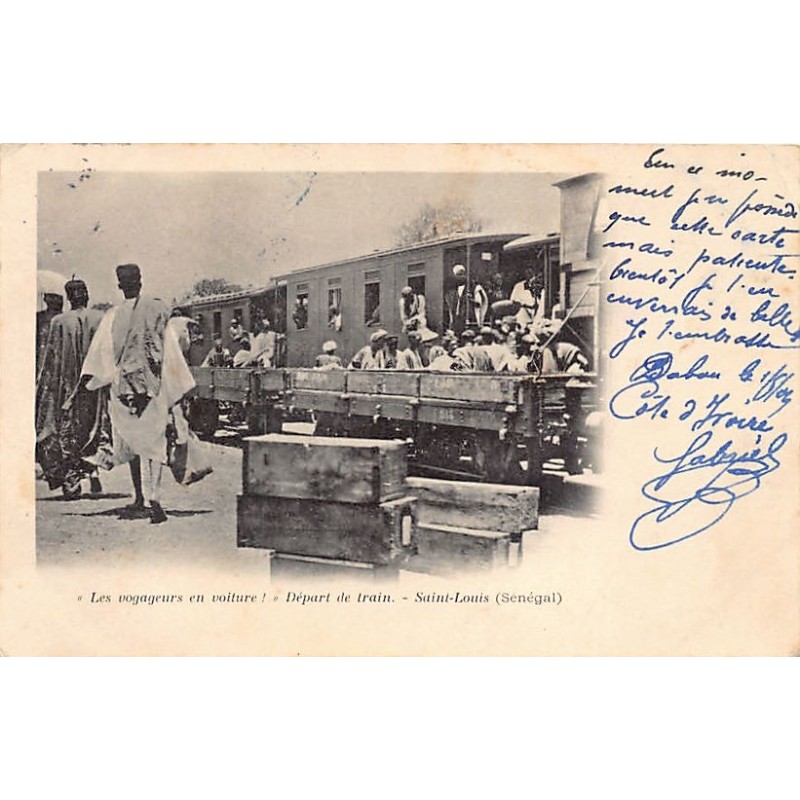 En ce mo-
ment je ne possède
que cette carte
mais patiente
bientôt je t'en
enverrais de belles
Je t'embrasse
Dabou le
Côte d'Ivoire
Gabriel
« Les vogageurs en voiture ! » Départ de train. - Saint-Louis (Sénégal)